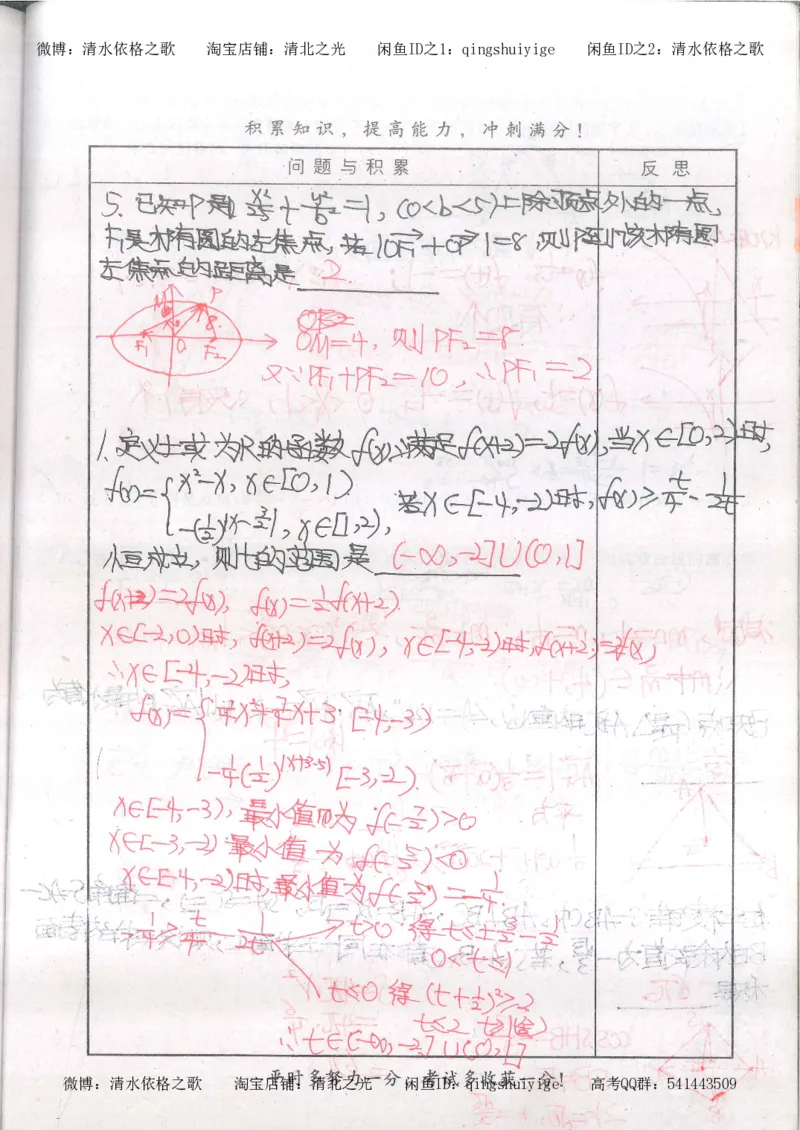 微博：清水依格之歌 淘宝店铺：清北之光 闲鱼ID之1：qingshuiyige 闲鱼ID之2：清水依格之歌
积累知识，提高能力，冲刺满分！
问题与积累 反思
5. 已知P是 x²/25 + y²/b² = 1, (0<b<5)上除顶点外的一点,
F₁是椭圆的左焦点, 若|OF₁+OP|=8, 则P到该椭圆
左焦点的距离是 2
M P
F₁ O F₂
OM=4, 则PF₂=8
又∵PF₁+PF₂=10, ∴PF₁=2
1. 定义域为R的函数f(x)满足f(x+2)=2f(x), 当x∈[0,2)时,
f(x)={x²-x, x∈[0,1)
-(1/2)^|x-3/2|, x∈[1,2),
若x∈[-4,-2)时, f(x)≥t/4-1/2t
恒成立, 则t的范围是 (-∞,-2]∪(0,1]
f(x+2)=2f(x), f(x)=1/2f(x+2).
x∈[-2,0)时, f(x+2)=2f(x), x∈[-4,-2)时, f(x+2)=2f(x),
∴x∈[-4,-2)时,
[-4,-3)
[-3,-2).
x∈[-4,-3), 最小值为f(-7/2)>0
x∈[-3,-2) 最小值为f(-5/2)<0
x∈[-4,-2)时, 最小值为f(-5/2)=-1/4.
-1/4≥t/4-1/2t
t>0 得
0<t≤1
t<0 得
∴t∈(-∞,-2]∪(0,1]
平时多努力一分，考试多收获一分！
微博：清水依格之歌 淘宝店铺：清北之光 闲鱼ID：qingshuiyige 高考QQ群：541443509